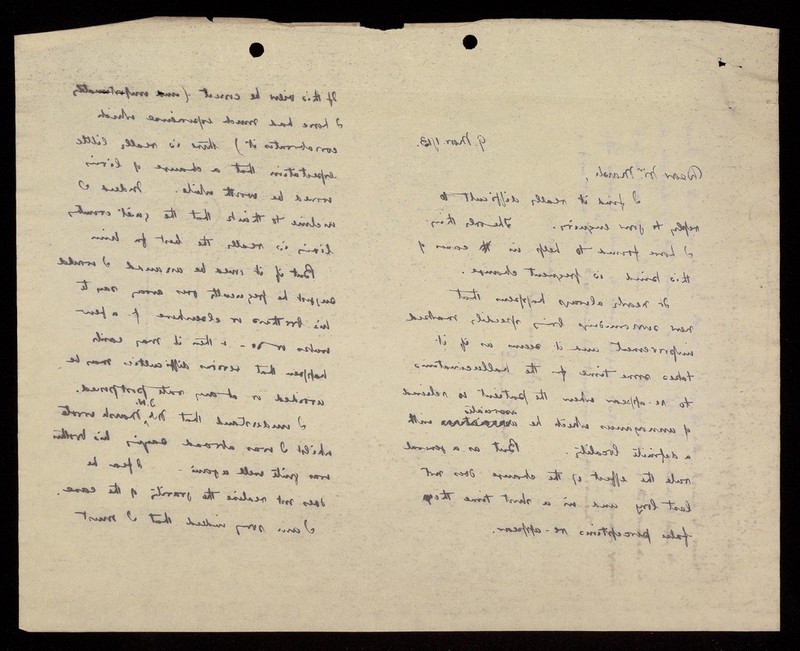 9 Nov.
Dear Mr. Marsh,
I find it really difficult to
reply to your enquiry. The only thing
I have found to help in the cases of
this kind is frequent change.
It nearly always happens that
new surroundings bring specially marked
improvement and it seems as if it
takes some time for the hallucinations
to re-appear when the patient is relieved
of annoyances which he associates with
a definite locality. But as a general
rule the effect of the change does not
last long and in a short time the
false perceptions re-appear.
If this view be correct (and unfortunately
I have had much experience which
corroborates it) there is really little
expectation that a change of living
would be worth while. Indeed I
incline to think that the quiet country
living is really the best for him
But if it could be arranged I would
suggest he frequently goes away say to
his brothers or elsewhere for a few
weeks or so - & then it may easily
happen that serious difficulties may be
avoided or at any rate postponed.
I understand that Mr. J.H. Marsh wrote
whilst I was abroad saying his brother
was quite well again. I fear he
does not realise the gravity of the case.
I am very indeed that I must